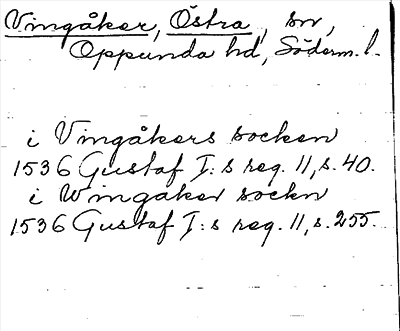 Vingåker, Östra, sn,
Oppunda hd, Söderm. l.
i Vingåkers socken
1536 Gustaf I:s reg. 11, s. 40.
i Wingaker sockn
1536 Gustaf I:s reg. 11, s. 255.